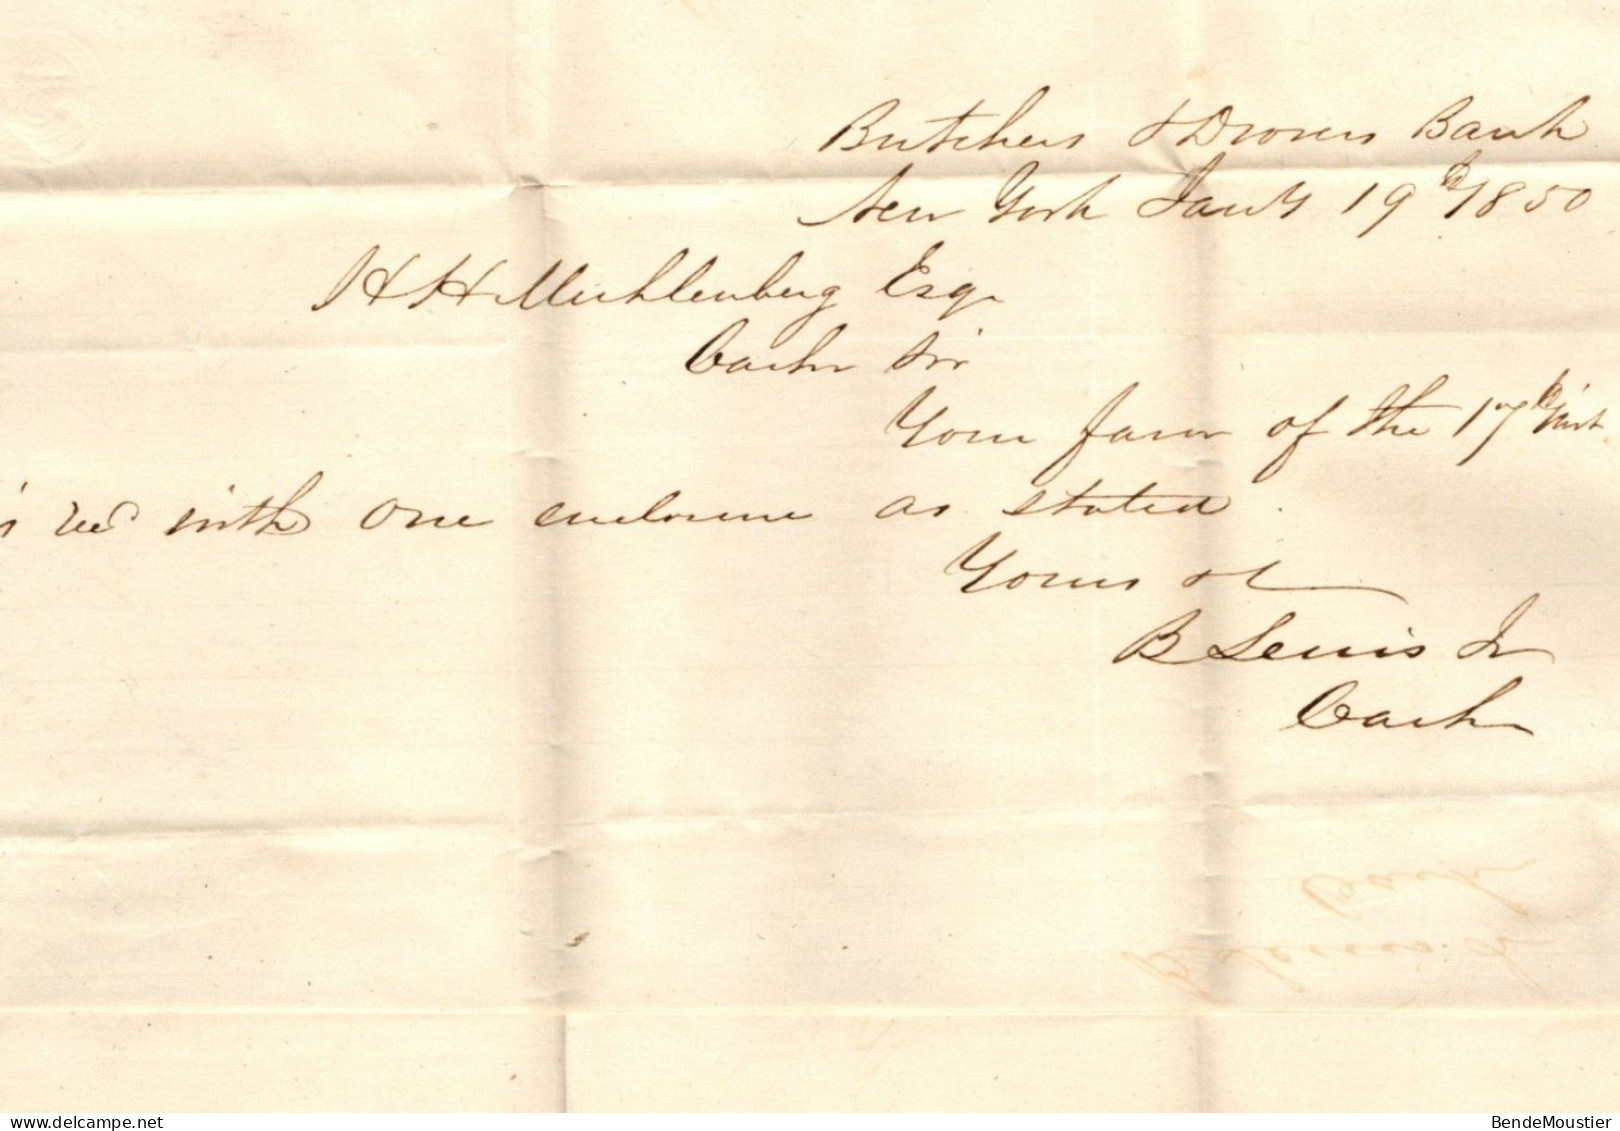 Butchers & Drovers Bank
New York Jany 19th 1850
H H Muhlenberg Esqr
Cashr Sir
Your favor of the 17th inst
is recd with one enclosure as stated.
Yours &c
B Lewis Jr
Cashr
delcampe.net
BendeMoustier